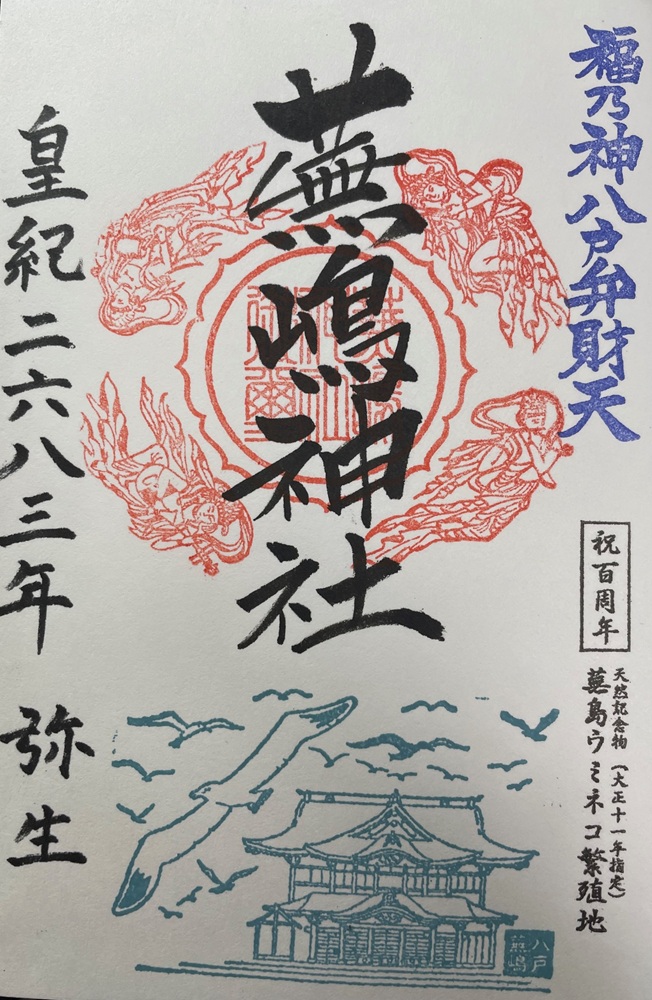 福乃神八戸弁財天
祝百周年
天然記念物（大正十一年指定）
蕪島ウミネコ繁殖地
蕪嶋神社
皇紀二六八三年 弥生
八戸
蕪嶋